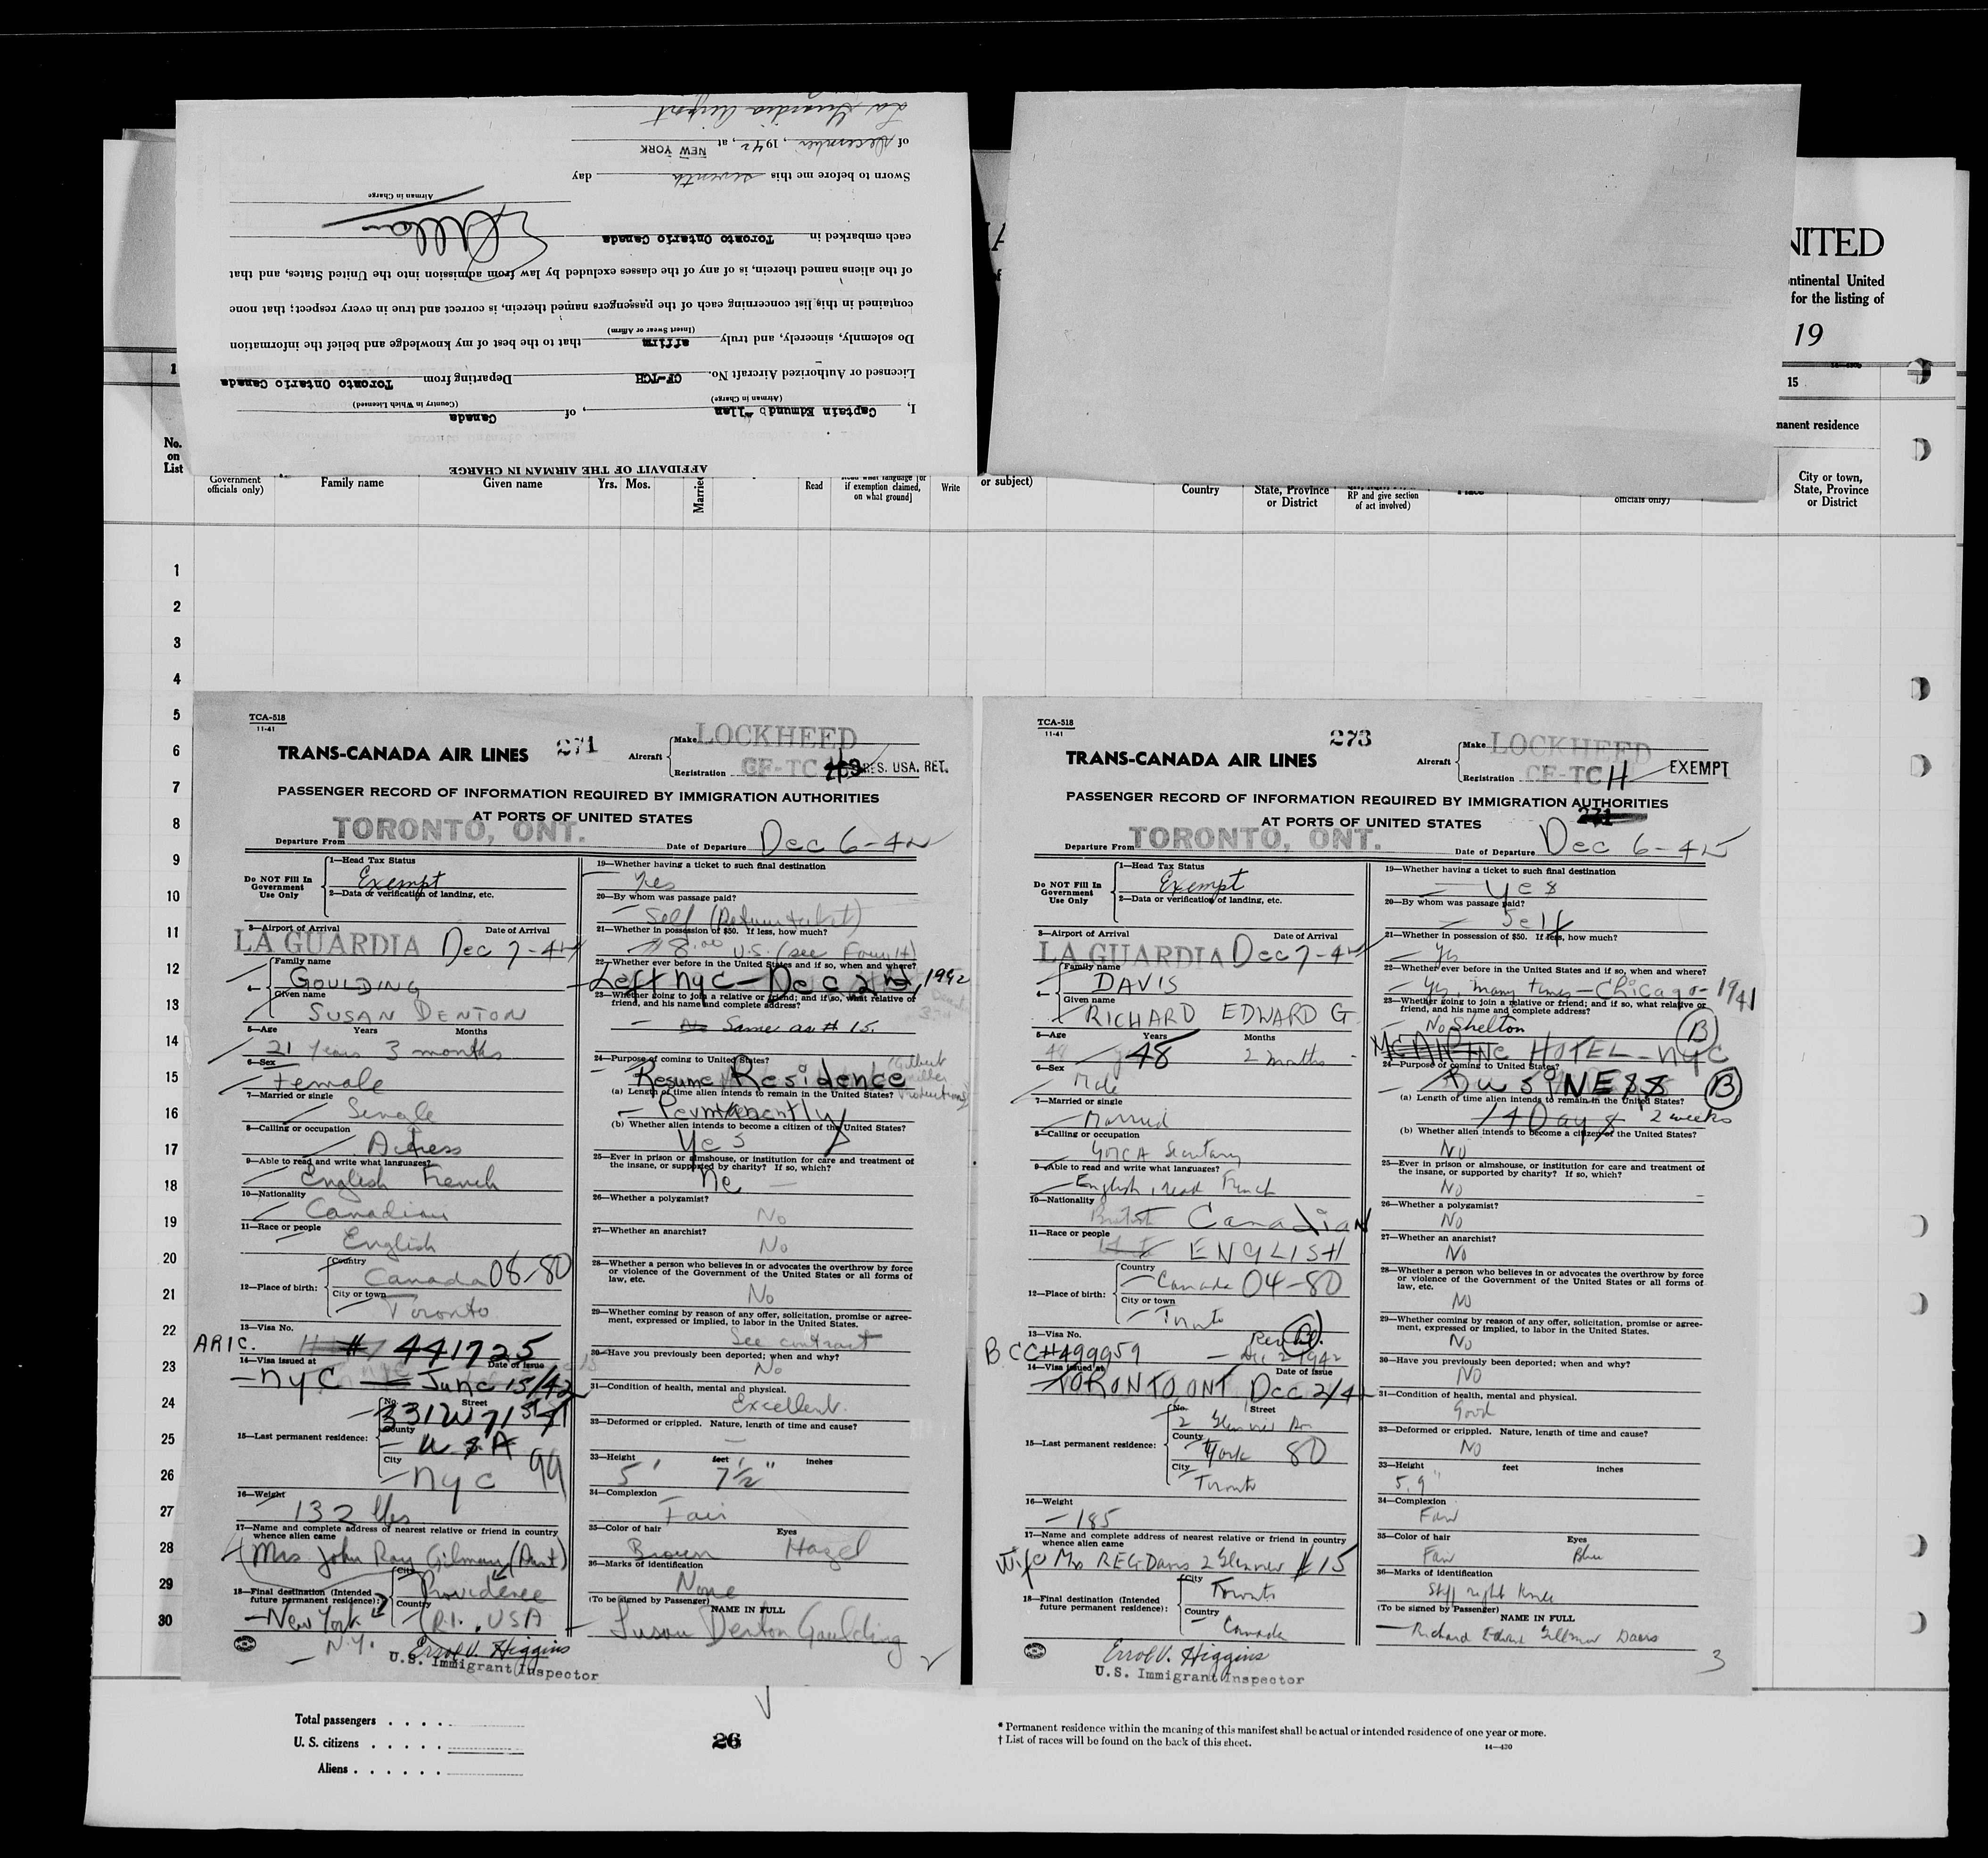 AFFIDAVIT OF THE AIRMAN IN CHARGE
I, Captain Edmund Allan, of Canada
(Airman in Charge) (Country in Which Licensed)
Licensed or Authorized Aircraft No. CF-TCH Departing from Toronto Ontario Canada
Do solemnly, sincerely, and truly affirm that to the best of my knowledge and belief the information
(Insert Swear or Affirm)
contained in this list concerning each of the passengers named therein, is correct and true in every respect; that none
of the aliens named therein, is of any of the classes excluded by law from admission into the United States, and that
each embarked in Toronto Ontario Canada
Airman in Charge
Sworn to before me this seventh day
of December, 1942, at NEW YORK
La Guardia Airport
NITED
ontinental United
for the listing of
19
15
manent residence
No.
on
List
Government
officials only)
Family name
Given name
Yrs. Mos.
Married
Read
if exemption claimed,
on what ground]
Write
or subject)
Country
State, Province
or District
RP and give section
of act involved)
officials only)
City or town,
State, Province
or District
1
2
3
4
5
6
7
8
9
10
11
12
13
14
15
16
17
18
19
20
21
22
23
24
25
26
27
28
29
30
TCA-518
11-41
TRANS-CANADA AIR LINES 271
Aircraft Make LOCKHEED
Registration CF-TC RES. USA. RET.
PASSENGER RECORD OF INFORMATION REQUIRED BY IMMIGRATION AUTHORITIES
AT PORTS OF UNITED STATES
Departure From TORONTO, ONT. Date of Departure Dec 6-42
Do NOT Fill In
Government
Use Only
1—Head Tax Status
Exempt
2—Data or verification of landing, etc.
3—Airport of Arrival Date of Arrival
LA GUARDIA Dec 7-42
4— Family name
GOULDING
Given name
SUSAN DENTON
5—Age Years Months
21 Years 3 months
6—Sex
Female
7—Married or single
Single
8—Calling or occupation
Actress
9—Able to read and write what languages?
English French
10—Nationality
Canadian
11—Race or people
English
12—Place of birth: Country
Canada 08-80
City or town
Toronto
13—Visa No.
ARIC. # 441725
14—Visa issued at Date of Issue
NYC June 15/42
15—Last permanent residence: No. Street
331 W 71 St
County
USA
City
NYC 99
16—Weight
132 lbs
17—Name and complete address of nearest relative or friend in country
whence alien came
Mrs John Ray Gilman (Aunt)
18—Final destination (Intended
future permanent residence):
City
Providence
Country
R.I., USA
New York
N.Y.
Errol V. Higgins
U.S. Immigrant Inspector
19—Whether having a ticket to such final destination
Yes
20—By whom was passage paid?
Self (Return ticket)
21—Whether in possession of $50. If less, how much?
$8.00 U.S. (see Form H)
22—Whether ever before in the United States and if so, when and where?
Left NYC - Dec 2nd, 1942
23—Whether going to join a relative or friend; and if so, what relative or
friend, and his name and complete address?
Same as # 15.
24—Purpose of coming to United States?
Resume Residence
(Gilbert Miller Productions)
(a) Length of time alien intends to remain in the United States?
Permanently
(b) Whether alien intends to become a citizen of the United States?
Yes
25—Ever in prison or almshouse, or institution for care and treatment of
the insane, or supported by charity? If so, which?
No
26—Whether a polygamist?
No
27—Whether an anarchist?
No
28—Whether a person who believes in or advocates the overthrow by force
or violence of the Government of the United States or all forms of
law, etc.
No
29—Whether coming by reason of any offer, solicitation, promise or agree-
ment, expressed or implied, to labor in the United States.
See contract
30—Have you previously been deported; when and why?
No
31—Condition of health, mental and physical.
Excellent
32—Deformed or crippled. Nature, length of time and cause?
33—Height feet inches
5' 7½"
34—Complexion
Fair
35—Color of hair Eyes
Brown Hazel
36—Marks of identification
None
(To be signed by Passenger)
NAME IN FULL
Susan Denton Goulding
TCA-518
11-41
TRANS-CANADA AIR LINES 273
Aircraft Make LOCKHEED
Registration CF-TCH EXEMPT
PASSENGER RECORD OF INFORMATION REQUIRED BY IMMIGRATION AUTHORITIES
AT PORTS OF UNITED STATES 271
Departure From TORONTO, ONT. Date of Departure Dec 6-42
Do NOT Fill In
Government
Use Only
1—Head Tax Status
Exempt
2—Data or verification of landing, etc.
3—Airport of Arrival Date of Arrival
LA GUARDIA Dec 7-42
4— Family name
DAVIS
Given name
RICHARD EDWARD G
5—Age Years Months
48 2 months
6—Sex
Male
7—Married or single
Married
8—Calling or occupation
YMCA Secretary
9—Able to read and write what languages?
English, read French
10—Nationality
British Canadian
11—Race or people
ENGLISH
12—Place of birth: Country
Canada 04-80
City or town
Toronto
13—Visa No.
BCC#499959 Dec 2 1942
14—Visa issued at Date of Issue
TORONTO, ONT Dec 2/42
15—Last permanent residence: No. Street
2
County
York 80
City
Toronto
16—Weight
185
17—Name and complete address of nearest relative or friend in country
whence alien came
Wife Mrs REG Davis 2 #15
18—Final destination (Intended
future permanent residence):
City
Toronto
Country
Canada
Errol V. Higgins
U.S. Immigrant Inspector
19—Whether having a ticket to such final destination
Yes
20—By whom was passage paid?
Self
21—Whether in possession of $50. If less, how much?
Yes
22—Whether ever before in the United States and if so, when and where?
Yes, many times - Chicago - 1941
23—Whether going to join a relative or friend; and if so, what relative or
friend, and his name and complete address?
No Shelton
HOTEL - NYC B
24—Purpose of coming to United States?
BUSINESS B
(a) Length of time alien intends to remain in the United States?
14 Days 2 weeks
(b) Whether alien intends to become a citizen of the United States?
No
25—Ever in prison or almshouse, or institution for care and treatment of
the insane, or supported by charity? If so, which?
No
26—Whether a polygamist?
No
27—Whether an anarchist?
No
28—Whether a person who believes in or advocates the overthrow by force
or violence of the Government of the United States or all forms of
law, etc.
No
29—Whether coming by reason of any offer, solicitation, promise or agree-
ment, expressed or implied, to labor in the United States.
No
30—Have you previously been deported; when and why?
No
31—Condition of health, mental and physical.
Good
32—Deformed or crippled. Nature, length of time and cause?
No
33—Height feet inches
5.9"
34—Complexion
Fair
35—Color of hair Eyes
Fair Blue
36—Marks of identification
Stiff right Knee
(To be signed by Passenger)
NAME IN FULL
Richard Edward Davis
3
Total passengers . . . .
U. S. citizens . . . . .
Aliens . . . . . .
26
* Permanent residence within the meaning of this manifest shall be actual or intended residence of one year or more.
† List of races will be found on the back of this sheet.
14—430